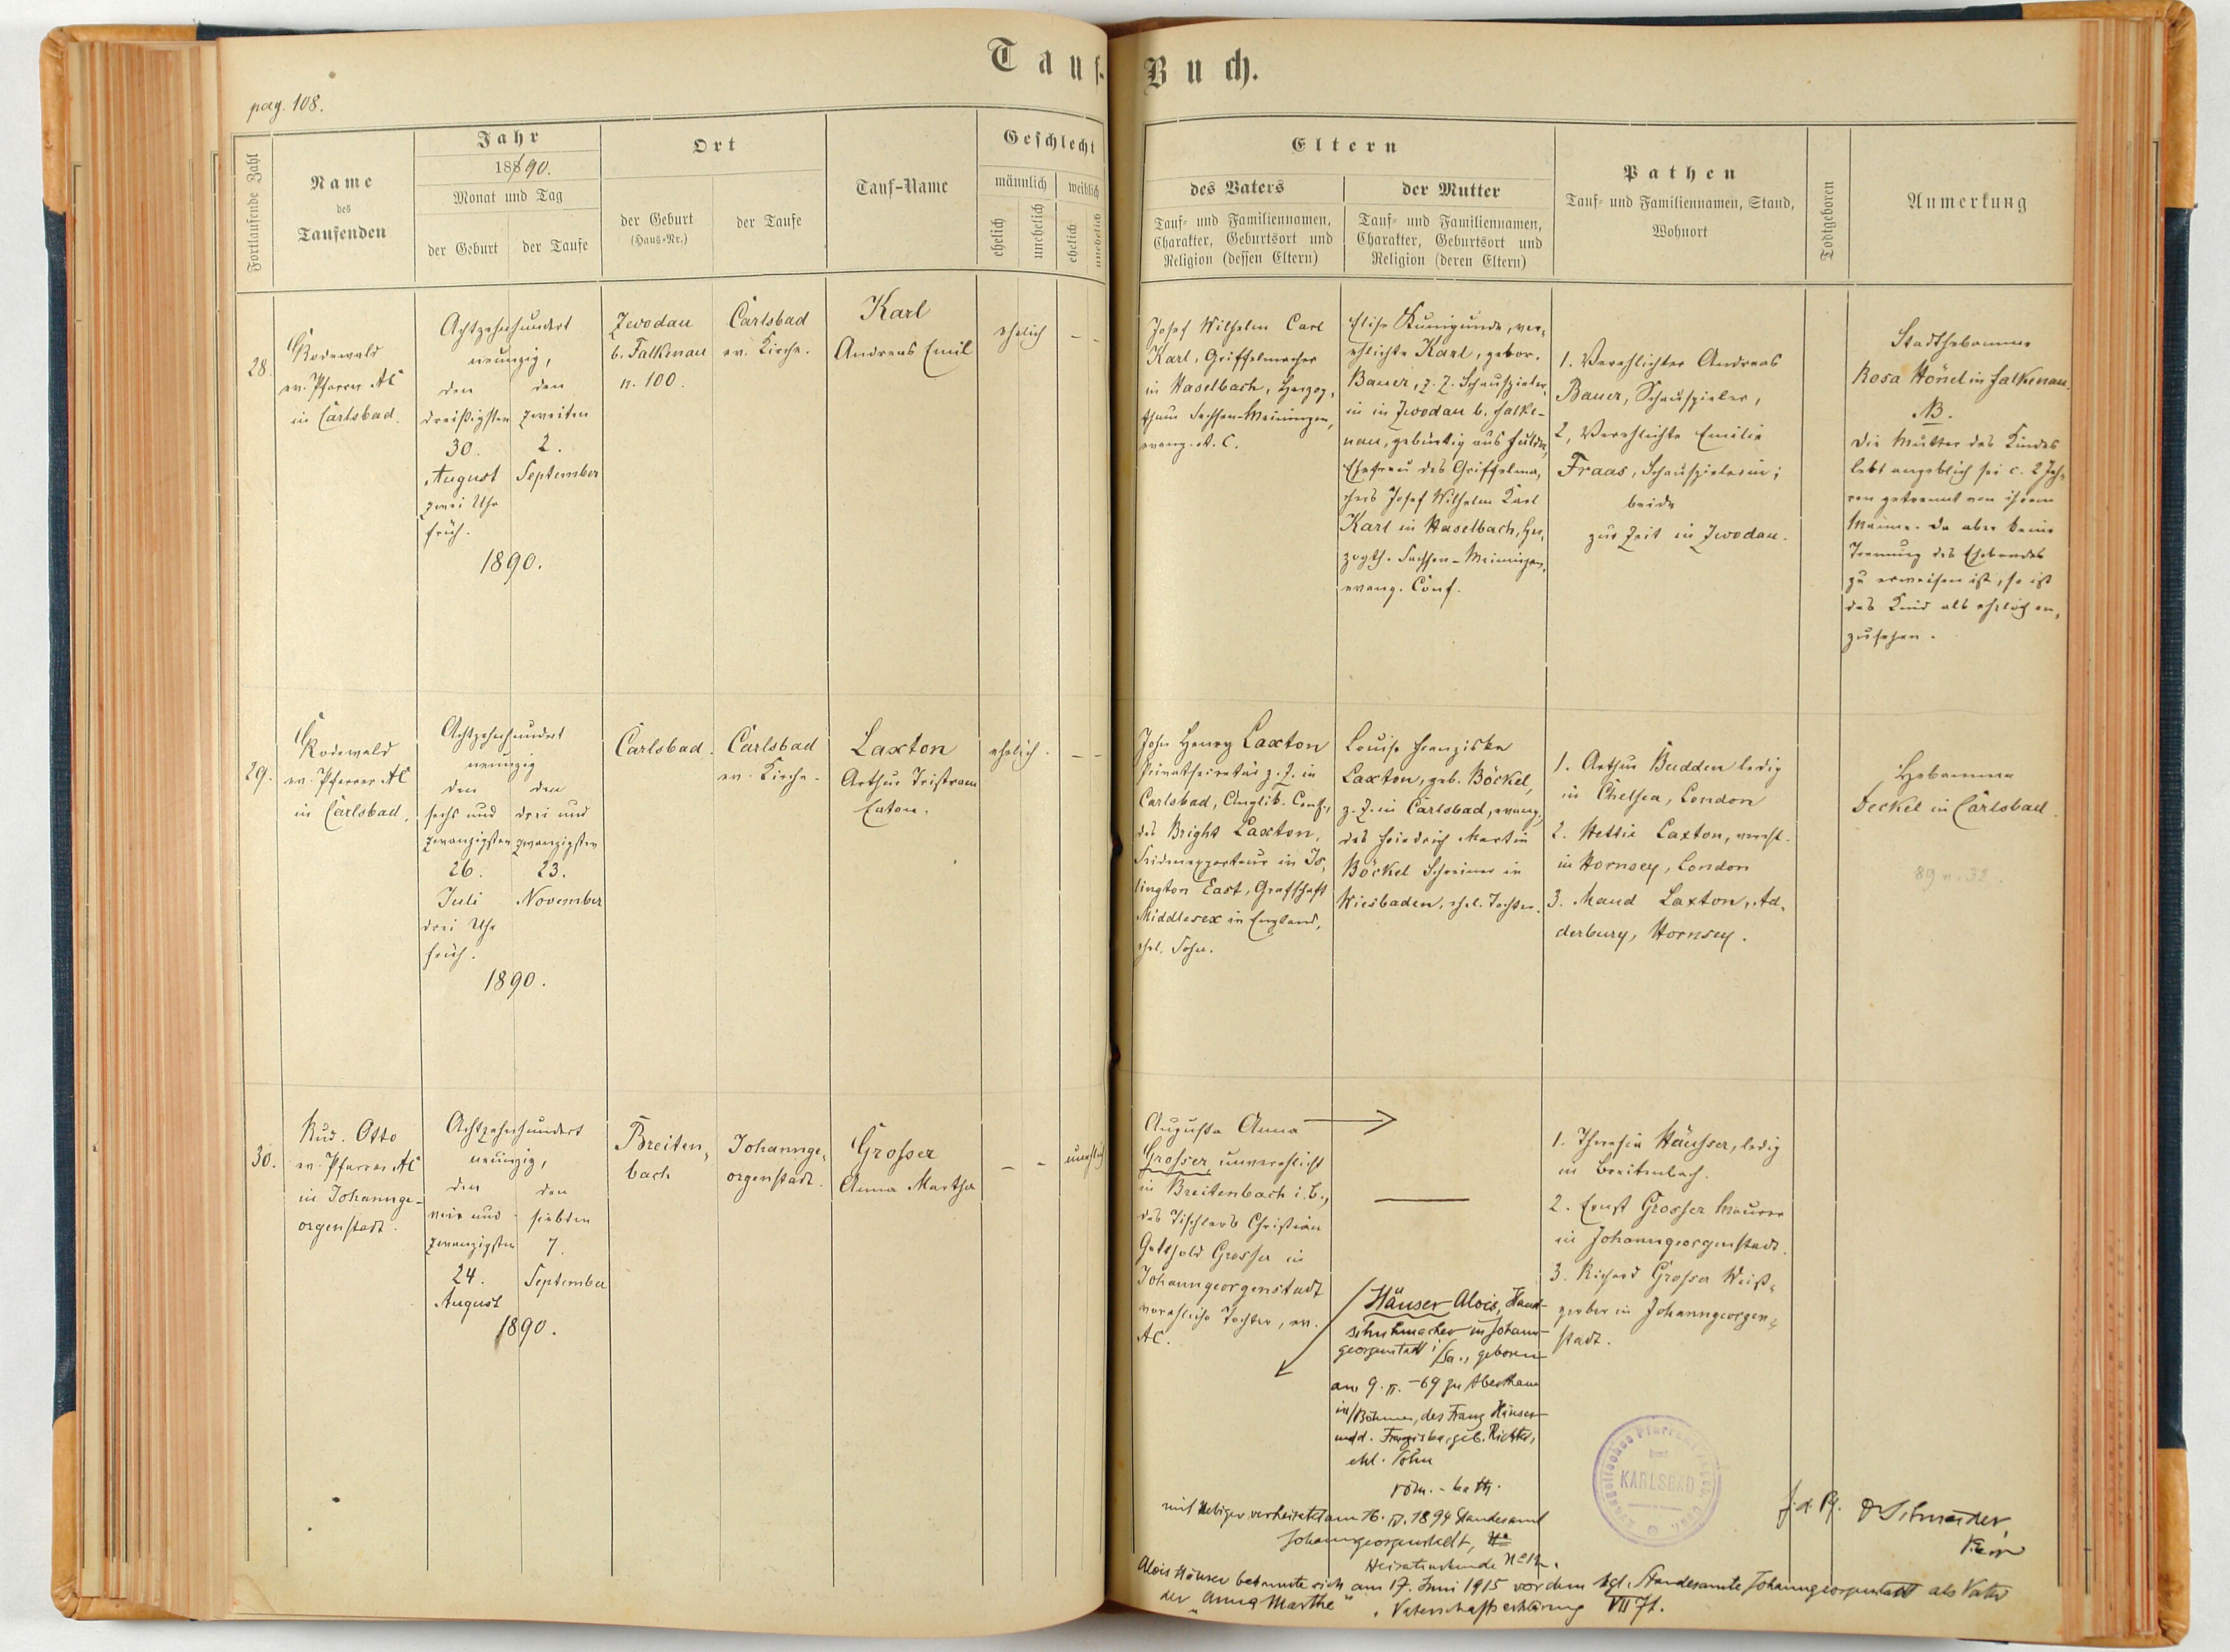 Tauf-Buch.
pag. 108.
Fortlaufende Zahl
Name
des
Taufenden
Jahr
1890.
Monat und Tag
der Geburt
der Taufe
Ort
der Geburt
(Haus-Nr.)
der Taufe
Tauf-Name
Geschlecht
männlich
weiblich
ehelich
unehelich
ehelich
unehelich
Eltern
des Vaters
Tauf- und Familiennamen,
Charakter, Geburtsort und
Religion (dessen Eltern)
der Mutter
Tauf- und Familiennamen,
Charakter, Geburtsort und
Religion (deren Eltern)
Pathen
Tauf- und Familiennamen, Stand,
Wohnort
Todtgeboren
Anmerkung
28.
Rodewald
ev. Pfarrer AC
in Carlsbad.
Achtzehnhundert
neunzig,
den
dreißigsten
30.
August
zwei Uhr
früh.
den
zweiten
2.
September
1890.
Zwodau
b. Falkenau
n. 100.
Carlsbad
ev. Kirche.
Karl
Andreas Emil
ehelich
– –
Josef Wilhelm Carl
Karl, Griffelmacher
in Haselbach, Herzog-
thum Sachsen-Meiningen,
evang. A. C.
Elise Kunigunde, ver-
ehlichte Karl, gebor.
Bauer, z. Z. Schauspiele-
in in Zwodau b. Falke-
nau, gebürtig aus Fulda,
Ehefrau des Griffelma-
chers Josef Wilhelm Karl
Karl in Haselbach, Her-
zogth. Sachsen-Meiningen,
evang. Conf.
1. Verehlichter Andreas
Bauer, Schauspieler,
2, Verehlichte Emilie
Fraas, Schauspielerin;
beide
zur Zeit in Zwodau.
Stadthebamme
Rosa Hönel in Falkenau.
NB.
Die Mutter des Kindes
lebt angeblich seit c. 2 Jah-
ren getrennt von ihrem
Manne. Da aber keine
Trennung des Ehebandes
zu erweisen ist, so ist
das Kind als ehelich an-
zusehen.
29.
Rodewald
ev. Pfarrer AC
in Carlsbad,
Achtzehnhundert
neunzig
den
sechs und
zwanzigsten
26.
Juli
drei Uhr
früh.
den
drei und
zwanzigsten
23.
November
1890.
Carlsbad.
Carlsbad
ev. Kirche.
Laxton
Arthur Tristram
Eaton.
ehelich.
– –
John Henry Laxton
Privatsecretär z. Z. in
Carlsbad, Anglik. Conf.,
des Bright Laxton,
in Is-
lington East, Grafschaft
Middlesex in England,
ehel. Sohn.
Louise Franziska
Laxton, geb. Böckel,
z. Z. in Carlsbad, evang.,
des Friedrich Martin
Böckel Schreiner in
Wiesbaden, ehel. Tochter.
1. Arthur Budden ledig
in Chelsea, London
2. Hettie Laxton, verehl.
in Hornsey, London
3. Maud Laxton, Ad-
derbury, Hornsey.
Hebamme
Deckel in Carlsbad.
89 n. 32.
30.
Rud. Otto
ev. Pfarrer AC
in Johannge-
orgenstadt.
Achtzehnhundert
neunzig,
den
vier und
zwanzigsten
24.
August
den
siebten
7.
September
1890.
Breiten-
bach
Johannge-
orgenstadt.
Grosser
Anna Martha
– –
unehelich
Augusta Anna
Grosser, unverehlicht
in Breitenbach i. B.,
des Tischlers Christian
Gotthold Grosser in
Johanngeorgenstadt
eheliche Tochter, ev.
AC.
Häuser Alois, Hand-
schuhmacher in Johann-
georgenstadt i/Sa., geboren
am 9. II. -69 zu Abertham
in/Böhmen, des Franz Häuser
und d. Franziska, geb. Richter,
ehl. Sohn
röm.-kath.
1. Theresia Häusser, ledig
in Breitenbach.
2. Ernst Grosser Maurer
in Johanngeorgenstadt.
3. Richard Grosser Weiß-
gerber in Johanngeorgen-
stadt.
KARLSBAD
mit Obiger verheiratet am 16. IV. 1894 Standesamt
Johanngeorgenstadt,
Heiratsurkunde No 12.
f. d. R. Dr Schneider,
Alois Häuser bekannte sich am 17. Juni 1915 vor dem kgl. Standesamte Johanngeorgenstadt als Vater
der "Anna Martha". Vaterschaftserklärung VII 71.